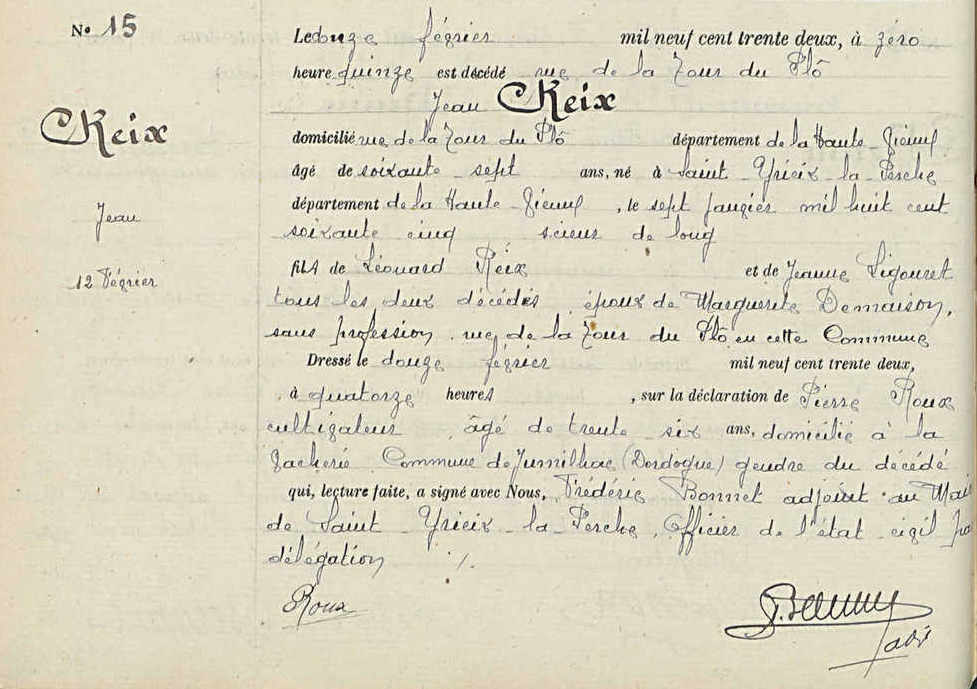 N° 15
Le douze février mil neuf cent trente deux, à zéro
heure quinze est décédé rue de la Tour du Plô
Jean Reix
Reix
domicilié rue de la Tour du Plô département de la Haute-Vienne
Jean
âgé de soixante sept ans, né à Saint-Yrieix-la-Perche
département de la Haute-Vienne, le sept janvier mil huit cent
soixante cinq scieur de long
12 Février
fils de Léonard Reix et de Jeanne Sigouret
tous les deux décédés époux de Marguerite Demaison,
sans profession rue de la Tour du Plô en cette Commune
Dressé le douze février mil neuf cent trente deux,
à quatorze heures, sur la déclaration de Pierre Roux
cultivateur âgé de trente six ans, domicilié à la
Vacherie Commune de Jumilhac (Dordogne) gendre du décédé
qui, lecture faite, a signé avec Nous, Frédéric Bonnet adjoint au Mai
de Saint-Yrieix-la-Perche, Officier de l'état civil
délégation ./.
Roux